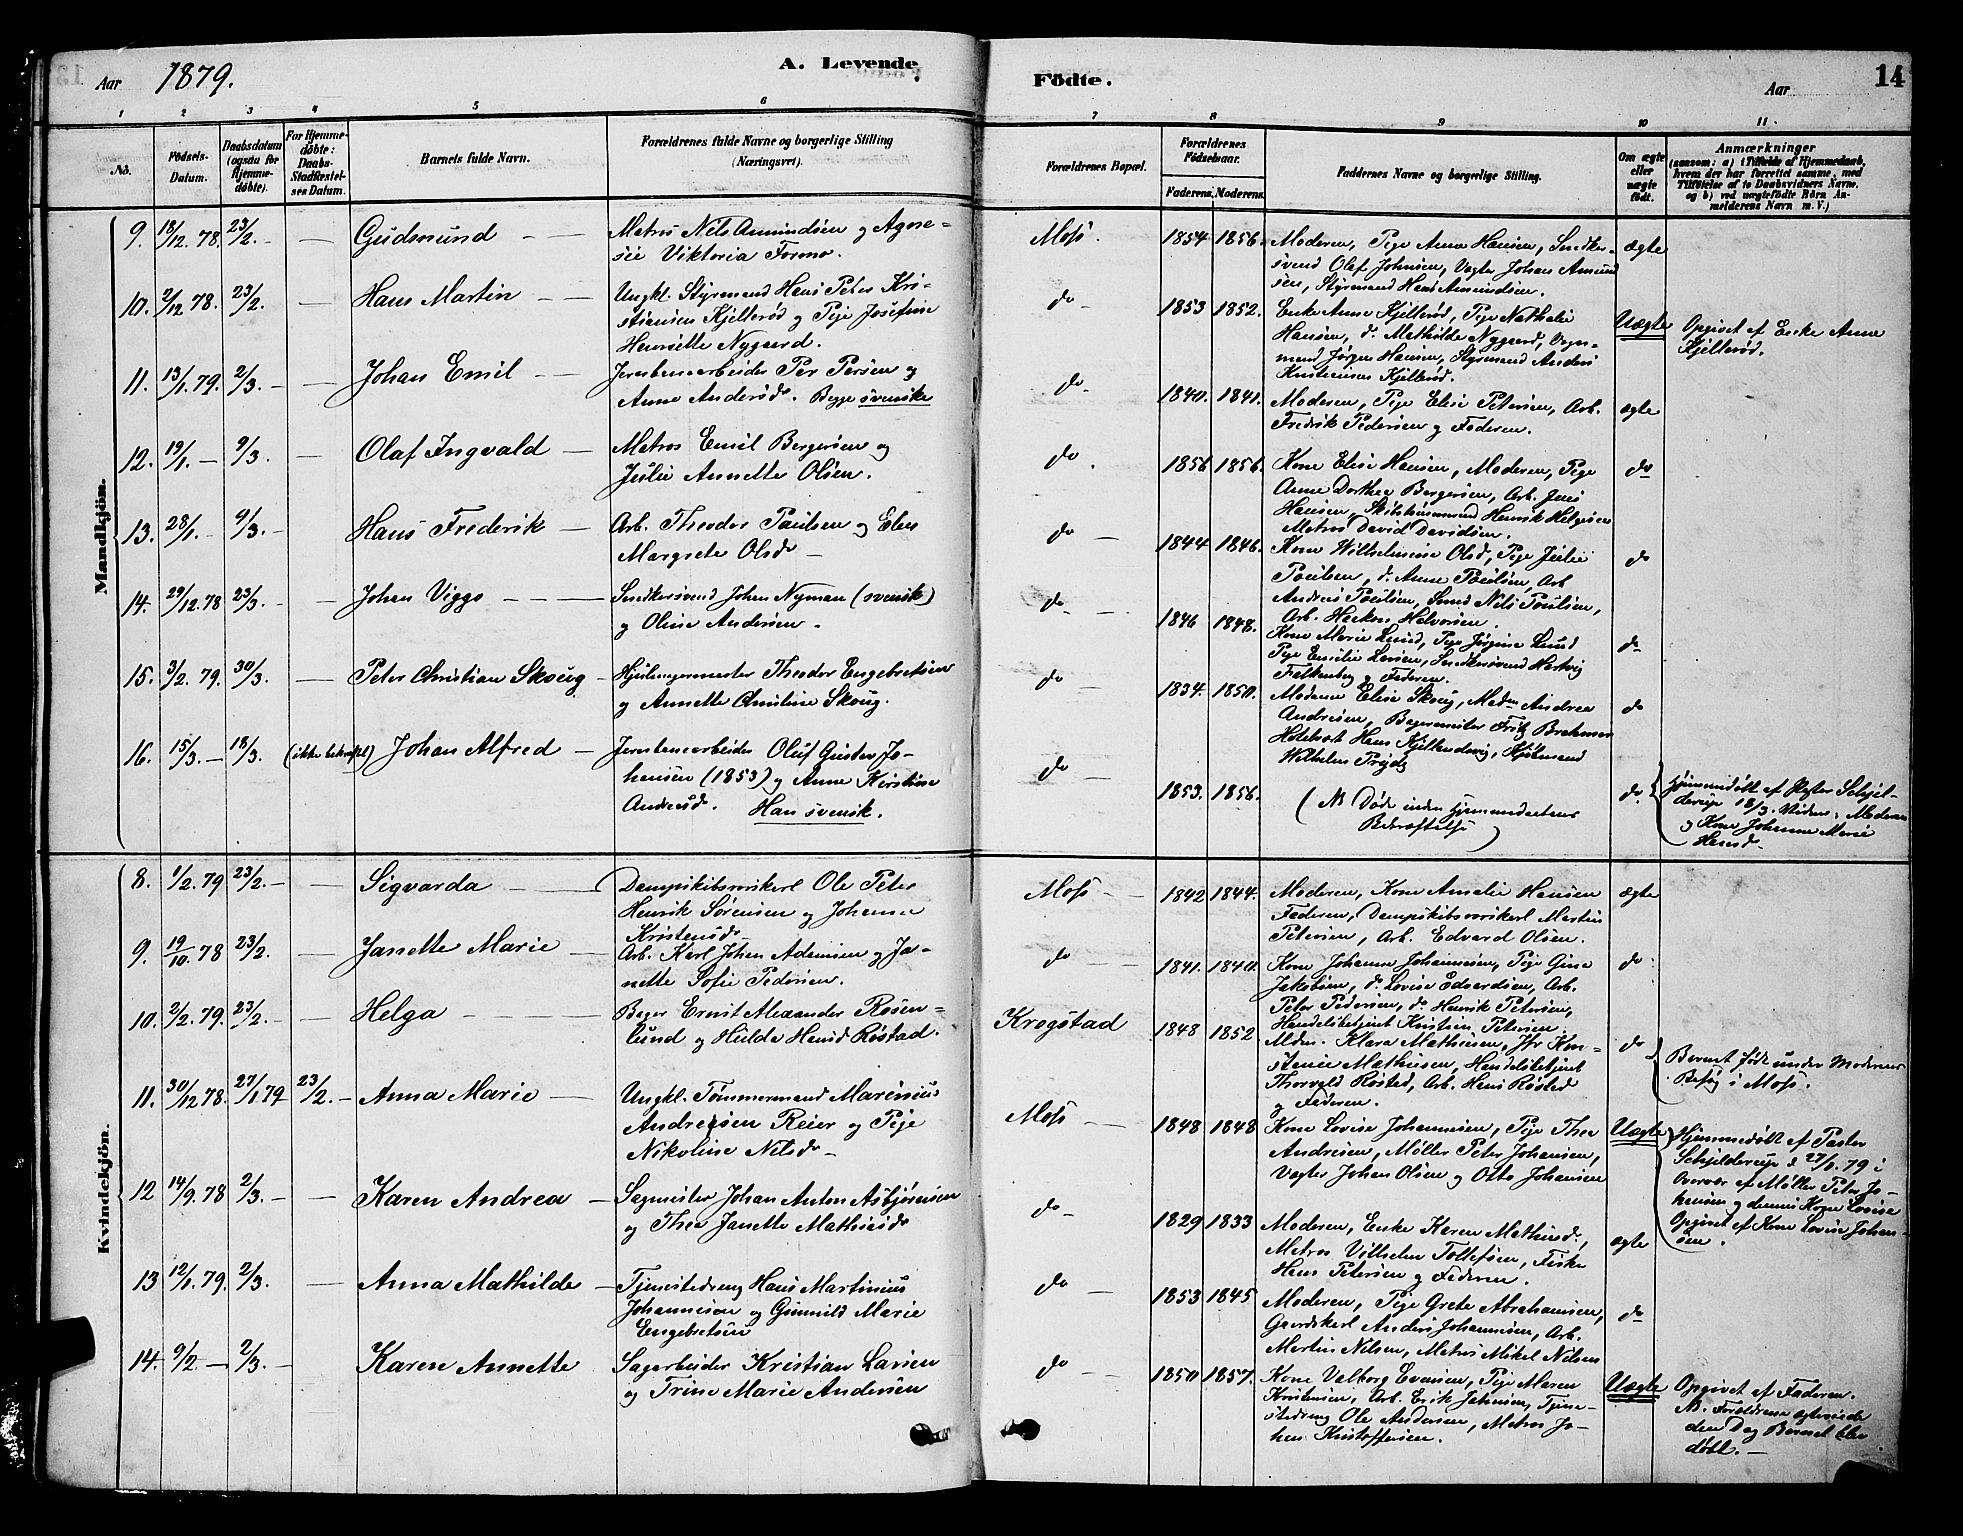 Aar 1879.
A. Levende
Födte.
Aar
14
1 2 3 4 5 6 7 8 9 10 11.
No.
Födsels-Datum.
Daabsdatum (ogsaa for Hjemme-døbte).
For Hjemme-døbte: Daabs-Stadfæstel-ses Datum.
Barnets fulde Navn.
Forældrenes fulde Navne og borgerlige Stilling (Næringsvei).
Forældrenes Bopæl.
Forældrenes Födselsaar.
Faderens. Moderens.
Faddernes Navne og borgerlige Stilling.
Om ægte eller uægte født.
Anmærkninger
(saasom: a) i Tilfælde af Hjemmedaab,
hvem der har forrettet samme, med
Tilføielse af to Daabsvidners Navne.
og b) ved uægtefödte Börn An-
melderens Navn m. V.)
Mandkjön.
9. 18/12. 78. 23/2. — — Gudmund — — Matros Nils Amundsen og Agne-
sie Viktoria Formo.
Moss. 1854. 1856. Moderen, Pige Anna Hansen, Snedker-
svend Olaf Johnsen, Vagter Johan Amund
sen, Styrmand Hans Amundsen.
ægte
10. 2/12 78. 23/2. — Hans Martin — — Ungkl. Styrmand Hans Peter Kri-
stiansen Kjellerød og Pige Josefine
Henriette Nygaard.
do 1853 1852. Enke Anne Kjellerød, Pige Nathalie
Hansen, do Mathilde Nygaard, Vogn-
mand Jørgen Hansen, Styrmand Anders
Kristiansen Kjellerød.
Uægte Opgivet af Enke Anne
Kjellerød.
11. 13/1 79. 2/3. — Johan Emil — Jernbanearbeider Per Persen og
Anne Andersd. Begge svenske
do 1840. 1841. Moderen, Pige Elise Petersen, Arb.
Fredrik Pedersen og Faderen.
ægte
12. 19/1. — 9/3. — Olaf Ingvald — Matros Emil Bergersen og
Julie Annette Olsen.
do. 1856 1856. Kone Elise Hansen, Moderen, Pige
Anne Dorthea Bergersen, Arb. Jens
Hansen, Skibstømmermand Henrik Helgesen
Matros David Davidsen.
do
13. 28/1. — 9/3. — Hans Frederik — Arb. Theodor Paulsen og Elen
Margrete Olsd —
do — 1844 1846. Kone Wilhelmine Olsd, Pige Julie
Paulsen, do Anne Paulsen, Arb
Andreas Paulsen, Smed Nils Paulsen,
Arb. Haakon Halvorsen.
do
14. 29/12. 78 23/3. — Johan Viggo — — — Snedkersvend Johan Nyman (svensk)
og Oline Andersen.
do — 1846 1848. Kone Marie Lund, Pige Jørgine Lund
Pige Emilie Larsen, Snedkersvend Hartvig
Falkenberg og Faderen.
do
15. 3/2. 79. 30/3. — Peter Christian Skoug — Theodor Engebretsen
og Annette Christine Skoug.
do — 1834. 1850. Madame Elise Skoug, Madm Andrea
Andresen, Bagermester Fritz
Hans
Wilhelm Prydz
do
16. 15/3. — 18/3. (ikke bekræftet) Johan Alfred — Jernbanearbeider Oluf Gustav Jo-
hansen (1853) og Anne Kirstine
Andreasd. Han svensk.
do — 1853. 1856. (NB Døde inden Hjemmedaabens
Bekræftelse)
do. Hjemmedøbt af Pastor Schjel-
derup 18/3. Vidner: Moderen
og Kone Johanne Marie
Hansd.
Kvindekjön.
8. 1/2. 79 23/2. — — Sigvarda — Dampskibsværkarl Ole Peter
Henrik Sørensen og Johanne
Kristensd —
Moss — 1842 1844. Moderen, Kone Amalie Hansen
Faderen, Martin
Petersen, Arb. Edvard Olsen.
ægte
9. 19/10. 78 23/2. — Janette Marie — Arb. Karl Johan Adamsen og Ja-
nette Sofie Pedersen.
do — 1841. 1840. Kone Johanne Johannesen, Pige Gina
Jakobsen, do Lovise Edvardsen, Arb.
Peter Pedersen, do Henrik Petersen,
Handelsbetjent Kristian Petersen
do.
10. 2/2. 79. 23/2. — — Helga — — — Bager Ernst Alexander Rosen-
lund og Hulda Hansd Røstad.
Krogstad 1848 1852 Mdm. Klara Mathiesen, Jfr Kon-
stance Mathiesen, Handelsbetjent
Thorvald Røstad, Arb. Hans Røstad
og Faderen.
do Barnet født under Moderens
Besøg i Moss.
11. 30/12 78. 27/1 79 23/2. — Anna Marie — Ungkl. Tømmermand Marenius
Andreasen Reier og Pige
Nikoline Nilsd —
Moss — 1848 1848 Kone Lovise Johannesen, Pige Thea
Andresen, Møller Peter Johansen,
Vagter Johan Olsen og Otto Johansen
Uægte Hjemmedøbt af Pastor
Schjelderup d 27/1. 79 i
Overvær af Møller Peter Jo-
hansen og dennes Kone Lovise
Opgivet af Kone Lovise Johan-
sen.
12 14/9. 78 2/3. — — Karen Andrea — Sagmester Johan Anton Asbjørnsen
og Thea Janette Mathisd
do — 1829 1833 Moderen, Enke Karen Mathisd,
Matros Vilhelm Tollefsen, Fisker
Hans Petersen og Faderen.
ægte
13 12/1. 79. 2/3. — Anna Mathilde — Tjenestedreng Hans Martinius
Johannesen og Gunnild Marie
Engebretsen
do 1853 1845 Moderen, Pige Grete Abrahamsen,
Gaardskarl Anders Johannesen, Arb.
Martin Nilsen, Matros Mikal Nilsen
do
14. 9/2 — 2/3. — Karen Annette Sagarbeider Kristian Larsen
og Trine Marie Andersen
do — 1850 1857. Kone Valborg Evensen, Pige Maren
Kristensen, Arb. Erik Johnsen, Tjene-
stedreng Ole Andersen, Matros Jo-
han Kristoffersen.
Uægte Opgivet af Faderen.
NB. Forældrene ægteviede
den Dag Barnet blev
døbt. —